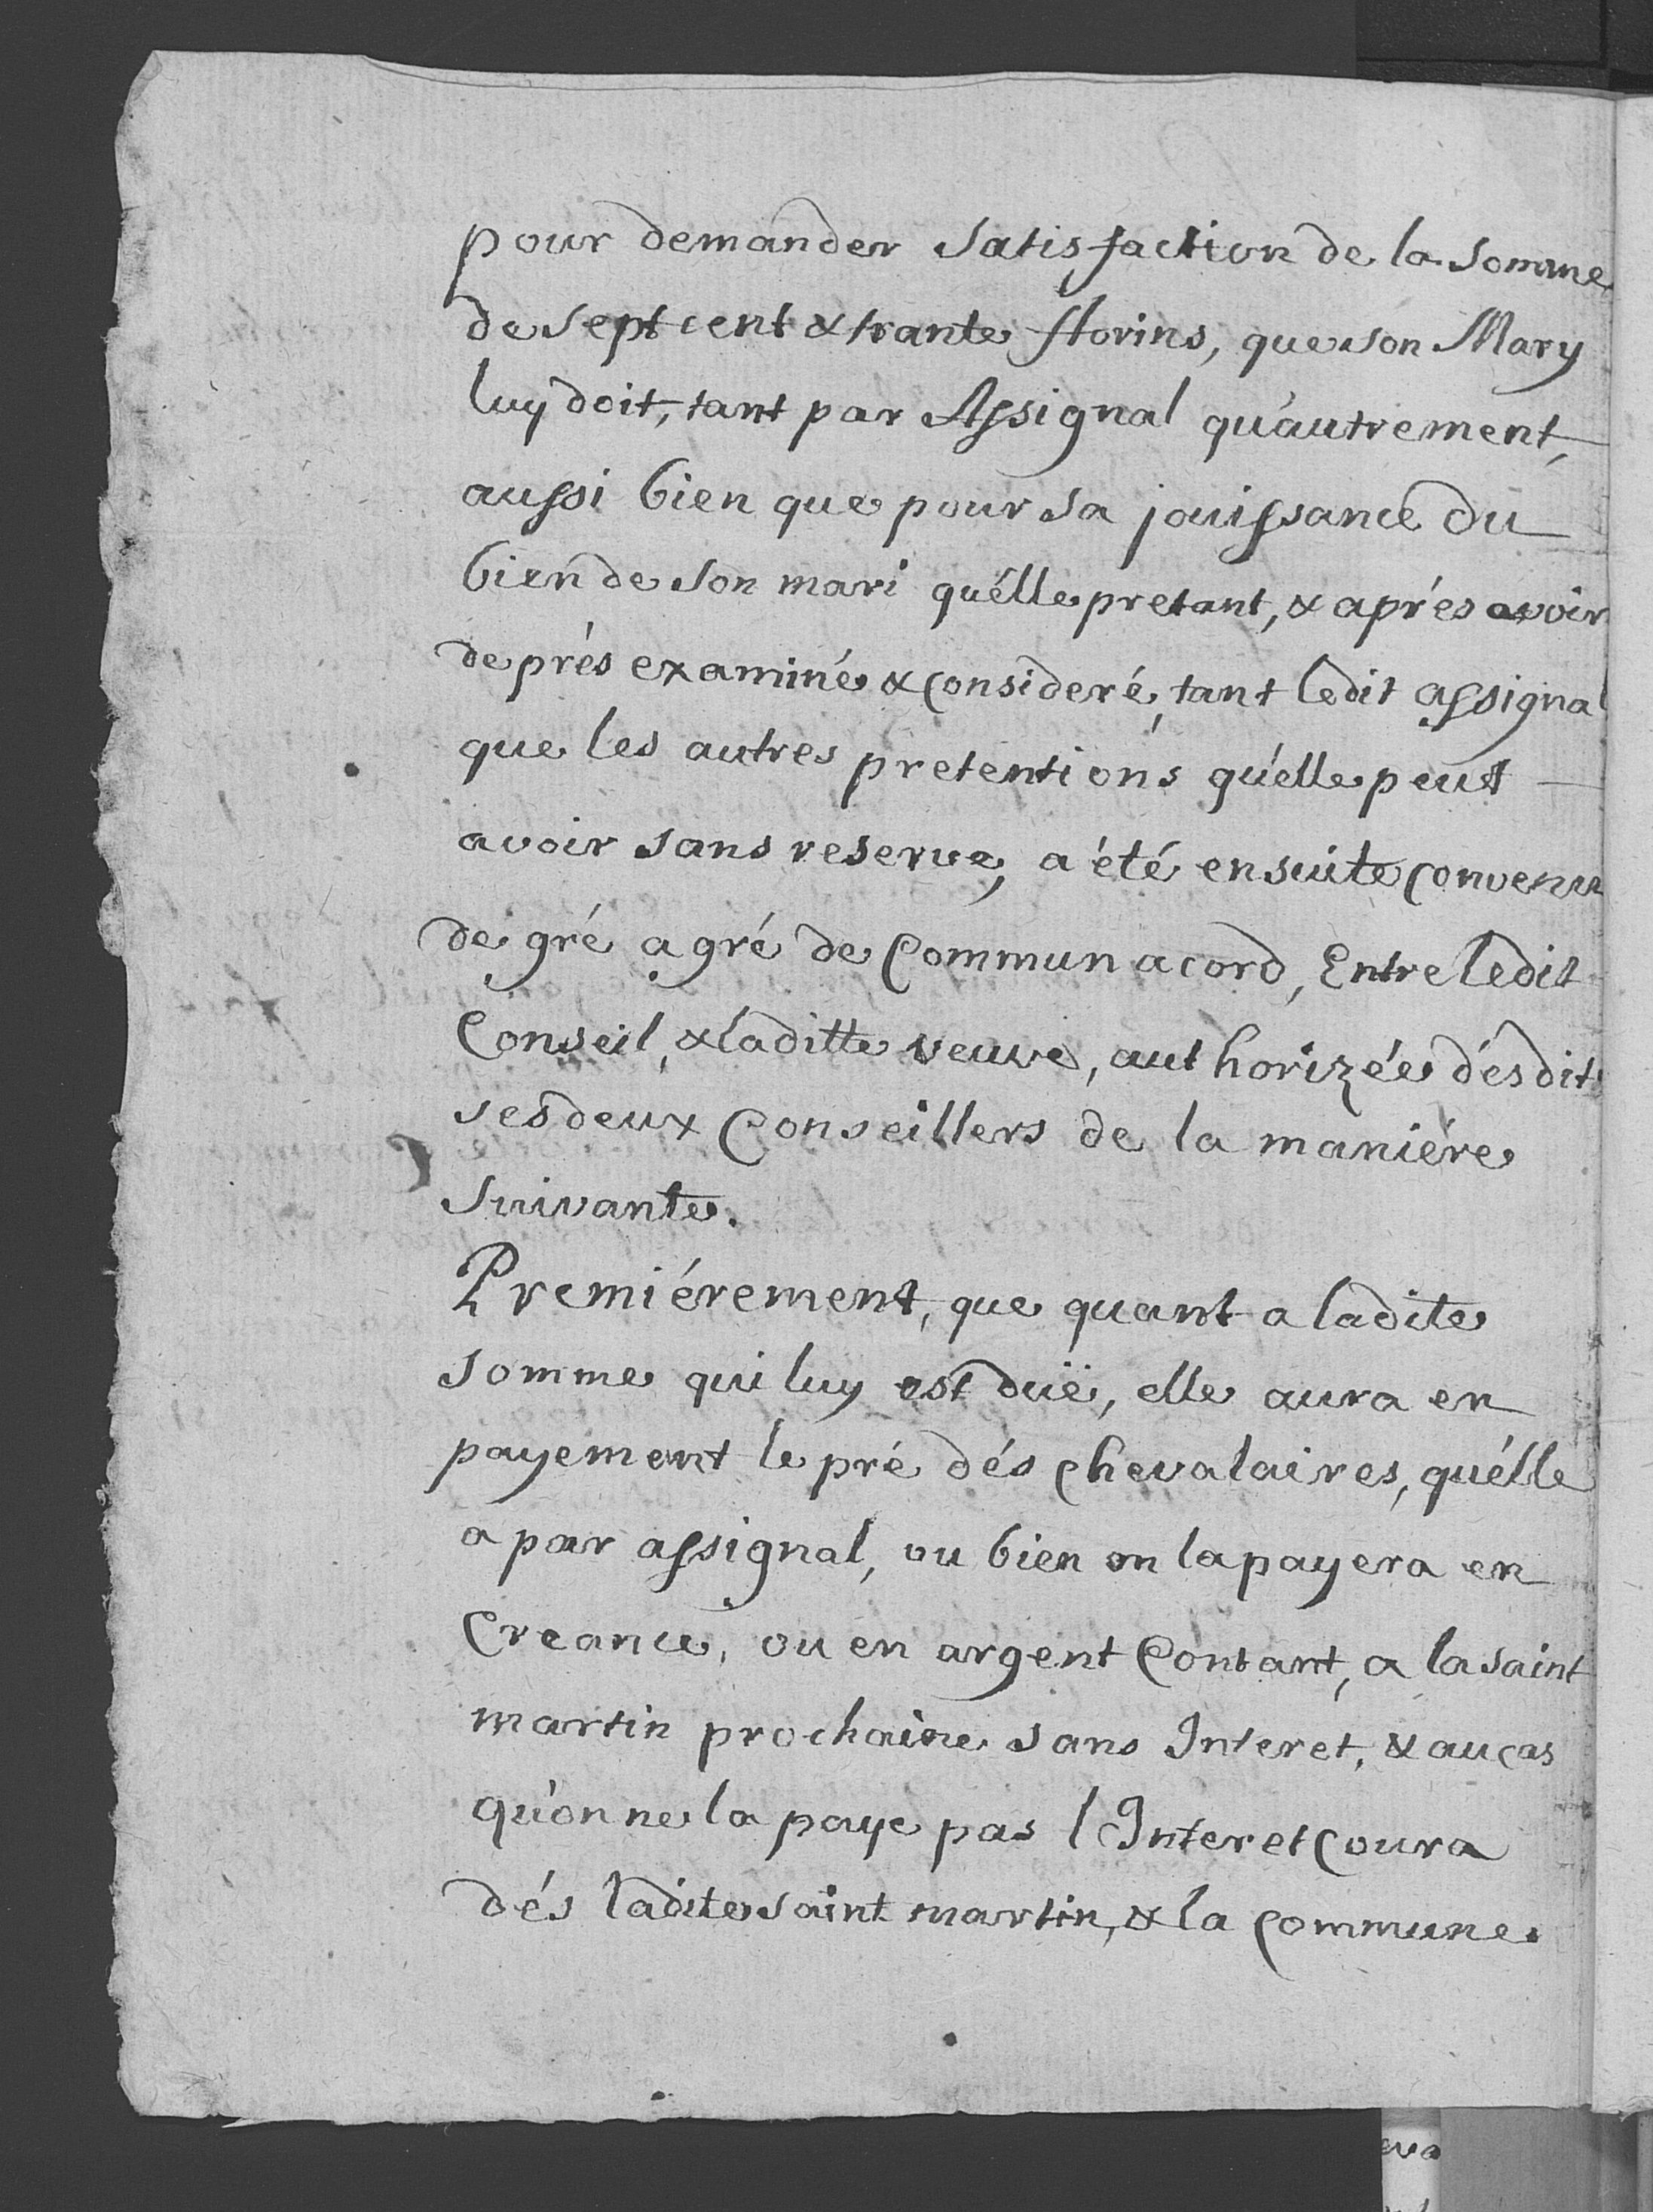 pour demander satisfaction de la somme
de sept cent & trante florins, que son Mary
luy doit, tant par Assignal qu'autrement,
aussi bien que pour sa jouissance du
bien de son mari qu'élle pretant, & aprés avoir
de prés examiné & consideré, tant ledit assignal
que les autres pretentions qu'elle peut
avoir sans reserve, a été ensuite convenu
de gré a gré de Commun acord, Entre ledit
Conseil, & laditte veuve, authorizée désdit
ses deux Conseillers de la maniére
suivante.
Premiérement, que quant a ladite
somme qui luy est duë, elle aura en
payement le pré dés chevalaires, qu'élle
a par assignal, ou bien on la payera en
Creance, ou en argent Contant, a la saint
martin prochaine sans Interet, & au cas
qu'on ne la paye pas l Interet coura
dés ladite saint martin, & la commune
eva